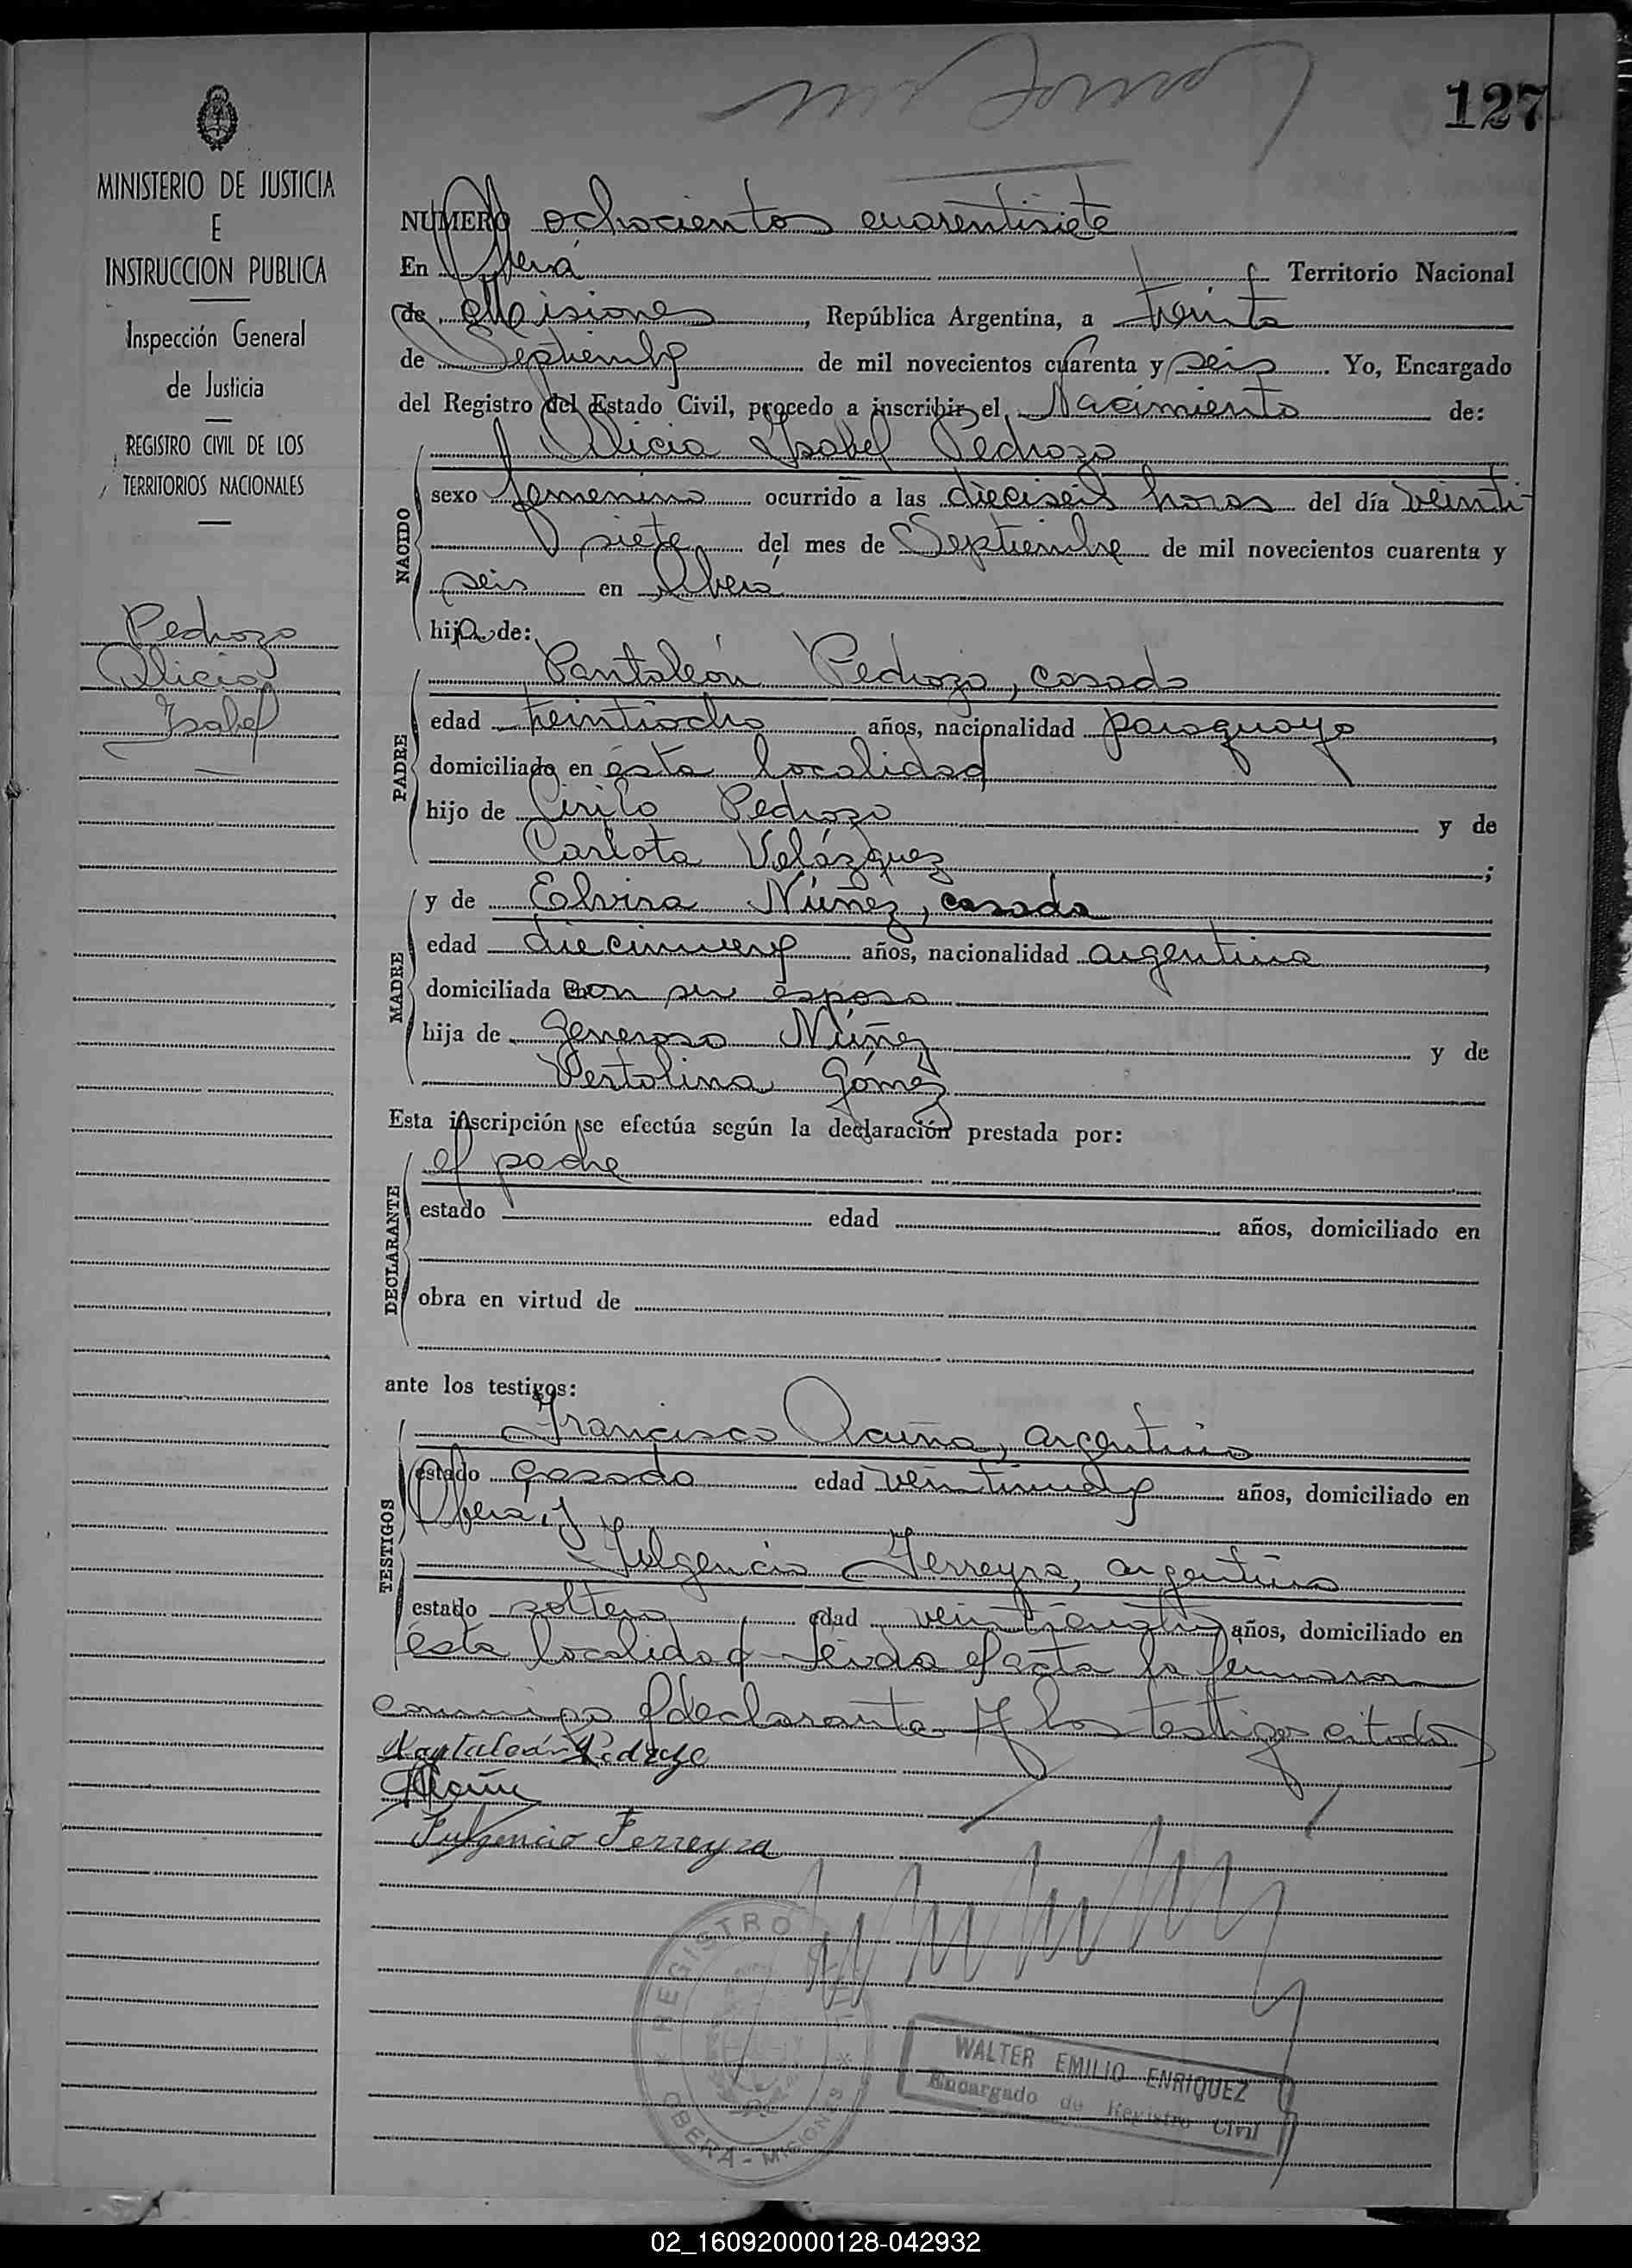 127
MINISTERIO DE JUSTICIA
E
INSTRUCCION PUBLICA
Inspección General
de Justicia
REGISTRO CIVIL DE LOS
TERRITORIOS NACIONALES
Pedrozo
Alicia
Isabel
NUMERO ochocientos cuarentisiete
En Oberá Territorio Nacional
de Misiones, República Argentina, a treinta
de Septiembre de mil novecientos cuarenta y seis. Yo, Encargado
del Registro del Estado Civil, procedo a inscribir el Nacimiento de:
NACIDO
Alicia Ysabel Pedrozo
sexo femenino ocurrido a las dieciseis horas del día veinti-
siete del mes de Septiembre de mil novecientos cuarenta y
seis en Oberá
hija de:
PADRE
Pantaleón Pedrozo, casado
edad treintiocho años, nacionalidad paraguayo,
domiciliado en ésta localidad
hijo de Cirilo Pedrozo y de
Carlota Velázquez;
MADRE
y de Elvira Núñez, casada
edad diecinueve años, nacionalidad argentina,
domiciliada con su esposo
hija de Generoso Núñez y de
Vertolina Gómez
Esta inscripción se efectúa según la declaración prestada por:
DECLARANTE
el padre
estado edad años, domiciliado en
obra en virtud de
ante los testigos:
TESTIGOS
Francisco Acuña, argentino
estado casado edad veintinueve años, domiciliado en
Oberá, y
Fulgencio Ferreyra, argentino
estado soltero edad veinticuatro años, domiciliado en
ésta localidad - Leída el acta la firmaron
conmigo el declarante y los testigos citados
Pantaleón Pedrozo
Fulgencio Ferreyra
REGISTRO CIVIL
OBERA - MISIONES
WALTER EMILIO ENRIQUEZ
Encargado de Registro Civil
02_160920000128-042932